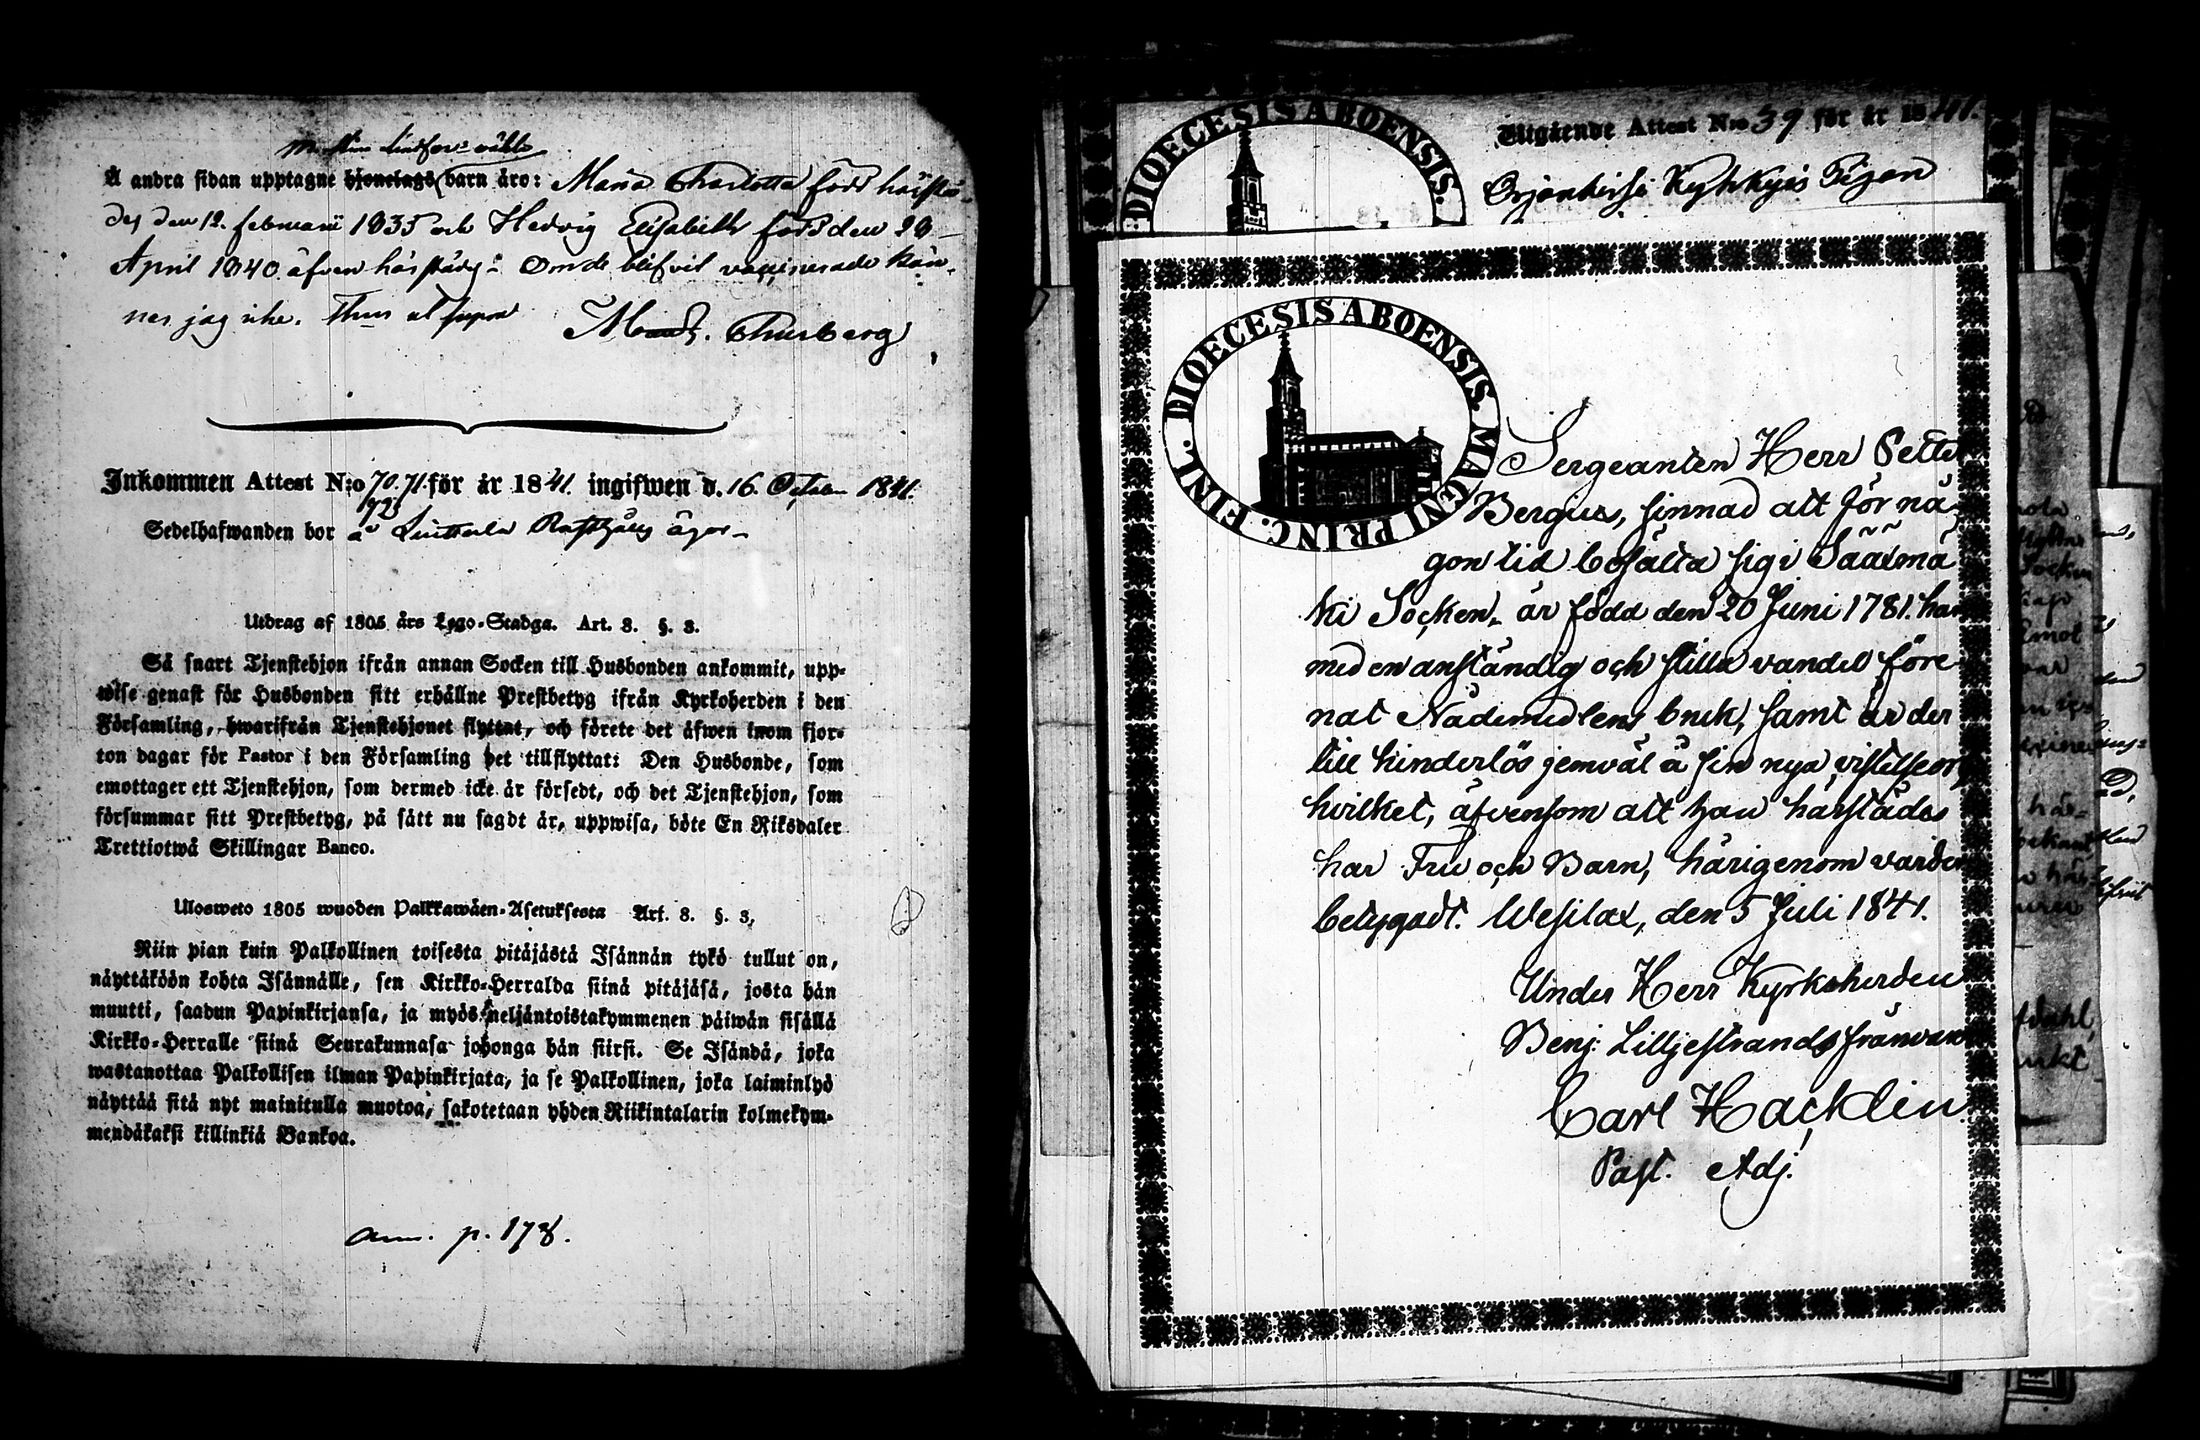 Å andra sidan upptagne hjonelags barn äro: Maria Charlotta född härstä-
des den 12. februarii 1835 och Hedvig Elisabeth född den 29
April 1840 äfven härstäds. Om de blifvit vaccinerade kän-
ner jag icke. Thus ut supra
Thurberg
Inkommen Attest N:o 70. 71. för år 1841. ingifwen d. 16. October 1841.
72
Sedelhafwanden bor å ägor
Utdrag af 1805 års Lego-Stadga. Art. 8. §. 3.
Så snart Tjenstehjon ifrån annan Socken till Husbonden ankommit, upp-
wise genast för Husbonden sitt erhållne Prestbetyg ifrån Kyrkoherden i den
Församling, hwarifrån Tjenstehjonet flyttat, och förete det äfwen inom fjor-
ton dagar för Pastor i den Församling det tillflyttat: Den Husbonde, som
emottager ett Tjenstehjon, som dermed icke är försedt, och det Tjenstehjon, som
försummar sitt Prestbetyg, på sätt nu sagdt är, uppwisa, böte En Riksdaler
Trettiotwå Skillingar Banco.
Ulosweto 1805 wuoden Palkkawäen-Asetuksesta Art. 8. §. 3.
Niin pian kuin Palkollinen toisesta pitäjästä Isännän tykö tullut on,
näyttäköön kohta Isännälle, sen Kirkko-Herralda siinä pitäjäsä, josta hän
muutti, saadun Papinkirjansa, ja myös neljäntoistakymmenen päiwän sisällä
Kirkko-Herralle siinä Seurakunnasa johonga hän siirsi. Se Isändä, joka
wastanottaa Palkollisen ilman Papinkirjata, ja se Palkollinen, joka laiminlyö
näyttää sitä nyt mainitulla muotoa, sakotetaan yhden Riikintalarin kolmekym-
mendäkaksi killinkiä Bankoa.
ann. p. 178.
DIOECESIS ABOENSIS.
Utgående Attest N:o 39 för år 1841.
Pigan
DIOECESIS ABOENSIS. MAGNI PRINC. FINL.
Sergeanten Herr Petter
Bergius, sinnad att för nå-
gon tid bosätta sig i Sääxmä
ki Socken, är född den 20 Juni 1781. har
med en anständig och stilla vandel före
nat Nådemedlens bruk, samt är der
till hinderlös jemväl å sin nya vistelseort
hvilket, äfvensom att han härstädes
har Fru och Barn, härigenom varder
betygadt. Wesilax, den 5 Juli 1841.
Under Herr Kyrkoherden
Benj: Lilljestrands frånvaro
Carl Hacklin
Past. Adj.